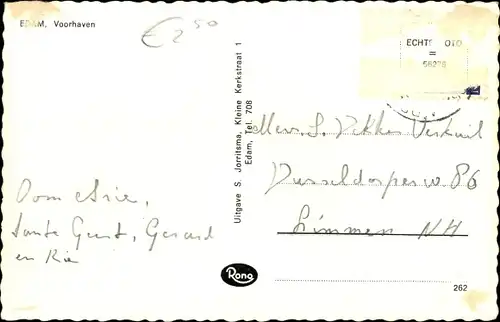 EDAM, Voorhaven
€ 2 50
ECHTE FOTO
=
56276
Uitgave S. Jorritsma, Kleine Kerkstraat 1
Edam, Tel. 708
Mevr. S. Dekker
Dusseldorperw 86
Limmen NH
Oom Arie,
Tante Geert, Gerard
en Ria
Rona
262